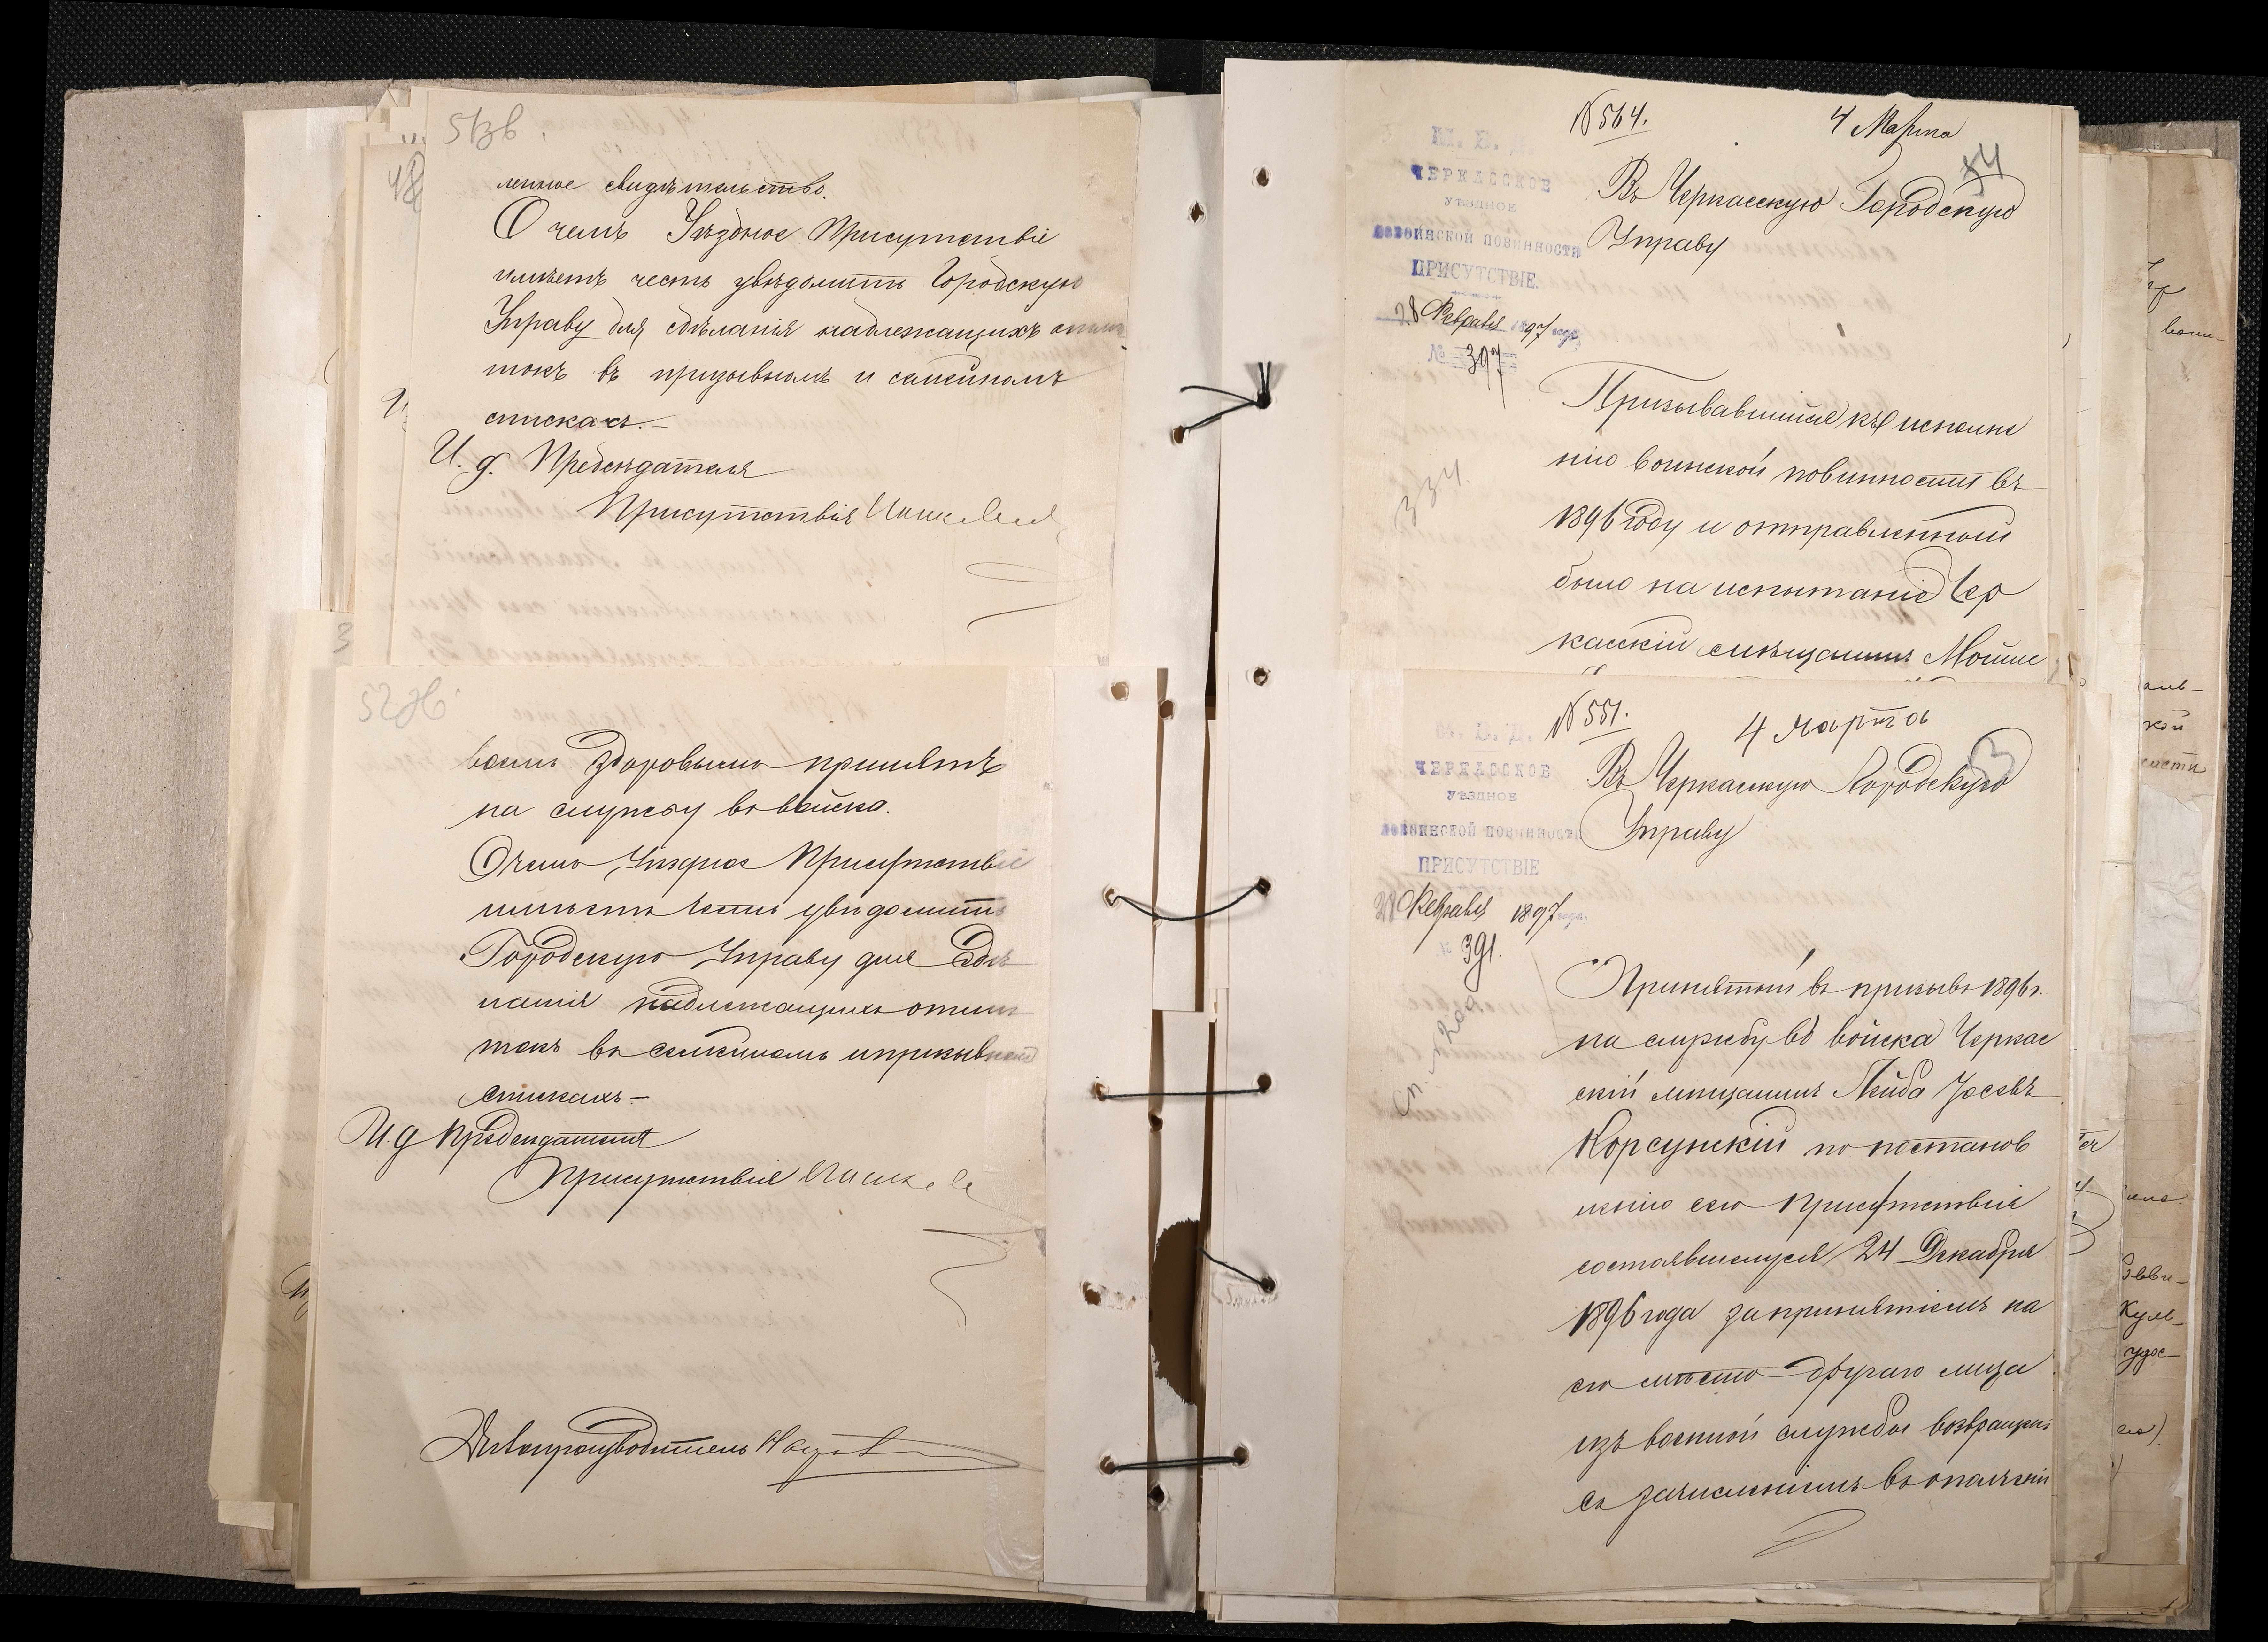 51зв.
ленное свидѣтельство.
О чемъ Уѣздное Присутствіе
имѣетъ честь увѣдомить Городскую
Управу для сдѣланія надлежащихъ отмѣ
токъ въ призывномъ и семейномъ
спискахъ.—
И. д. Предсѣдателя
Присутствія
52зв
вомъ здоровымъ принятъ
на службу въ войска.
О чемъ Уѣздное Присутствіе
имѣетъ честь увѣдомить
Городскую Управу для сдѣ
ланія надлежащихъ отмѣ
токъ въ семейномъ и призывномъ
спискахъ.—
И. д Предсѣдателя
Присутствія
Дѣлопроизводитель
№ 564.
4 Марта
54
М. В. Д.
ЧЕРКАССКОЕ
УѢЗДНОЕ
по воинской повинности
ПРИСУТСТВІЕ.
28 Февраля 1897 года.
№ 397
334.
Въ Черкасскую Городскую
Управу
Призывавшійся къ исполне
нію воинской повинности въ
1896 году и отправленный
было на испытаніе Чер
касскій мѣщанинъ Мойше
№ 551.
4 марта
53
М. В. Д.
ЧЕРКАССКОЕ
УѢЗДНОЕ
по воинской повинности
ПРИСУТСТВІЕ
28 Февраля 1897 года.
№ 391.
Въ Черкасскую Городскую
Управу
Принятый въ призывъ 1896 г.
на службу въ войска Черкас
скій мѣщанинъ Лейба Іосевъ
Корсунскій по постанов
ленію сего Присутствія
состоявшемуся 24 Декабря
1896 года за принятіемъ на
его мѣсто другаго лица
изъ военной службы возвращенъ
съ зачисленіемъ въ ополченіе